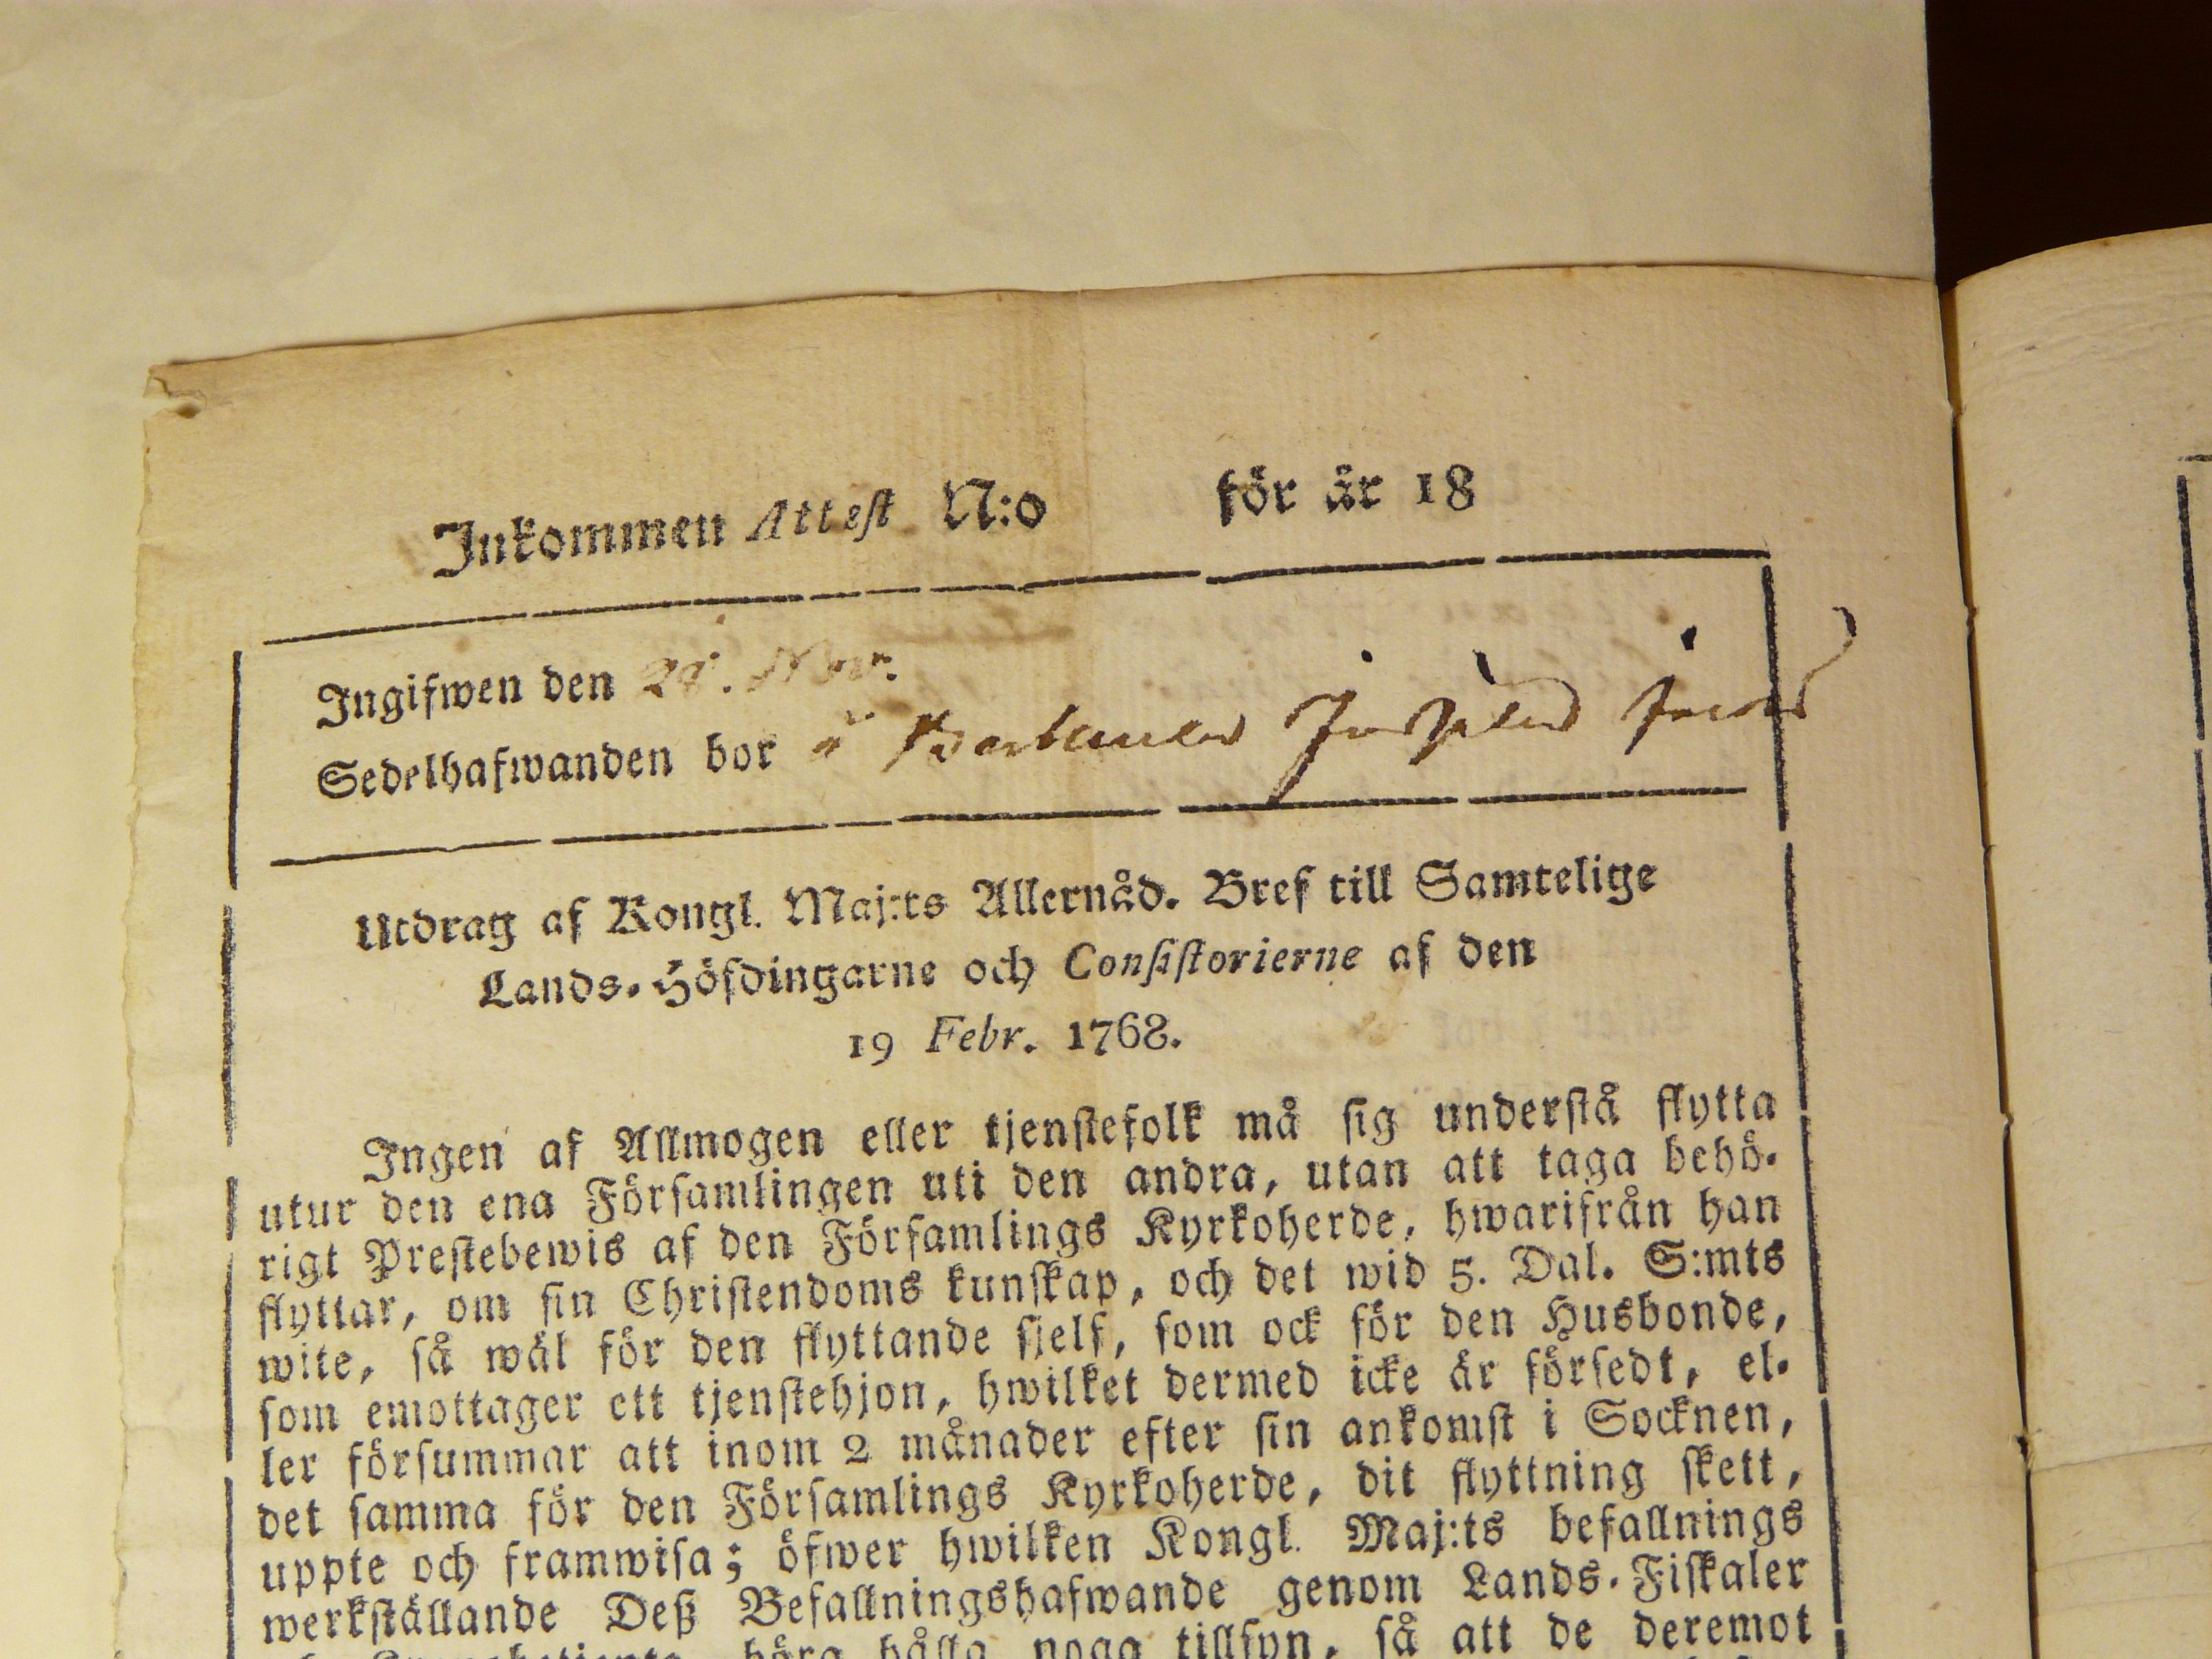 Inkommen Attest N:o för år 18
Ingifwen den 28. Nov.
Sedelhafwanden bor
Utdrag af Kongl. Maj:ts Allernåd. Bref till Samtelige
Lands-Höfdingarne och Consistorierne af den
19 Febr. 1768.
Ingen af Allmogen eller tjenstefolk må sig understå flytta
utur den ena Församlingen uti den andra, utan att taga behö-
rigt Prestebewis af den Församlings Kyrkoherde, hwarifrån han
flyttar, om sin Christendoms kunskap, och det wid 5. Dal. S:mts
wite, så wäl för den flyttande sjelf, som ock för den Husbonde,
som emottager ett tjenstehjon, hwilket dermed icke är försedt, el-
ler försummar att inom 2 månader efter sin ankomst i Socknen,
det samma för den Församlings Kyrkoherde, dit flyttning skett,
uppte och framwisa; öfwer hwilken Kongl. Maj:ts befallnings
werkställande Deß Befallningshafwande genom Lands-Fiskaler
böra hålla noga tillsyn, så att de deremot